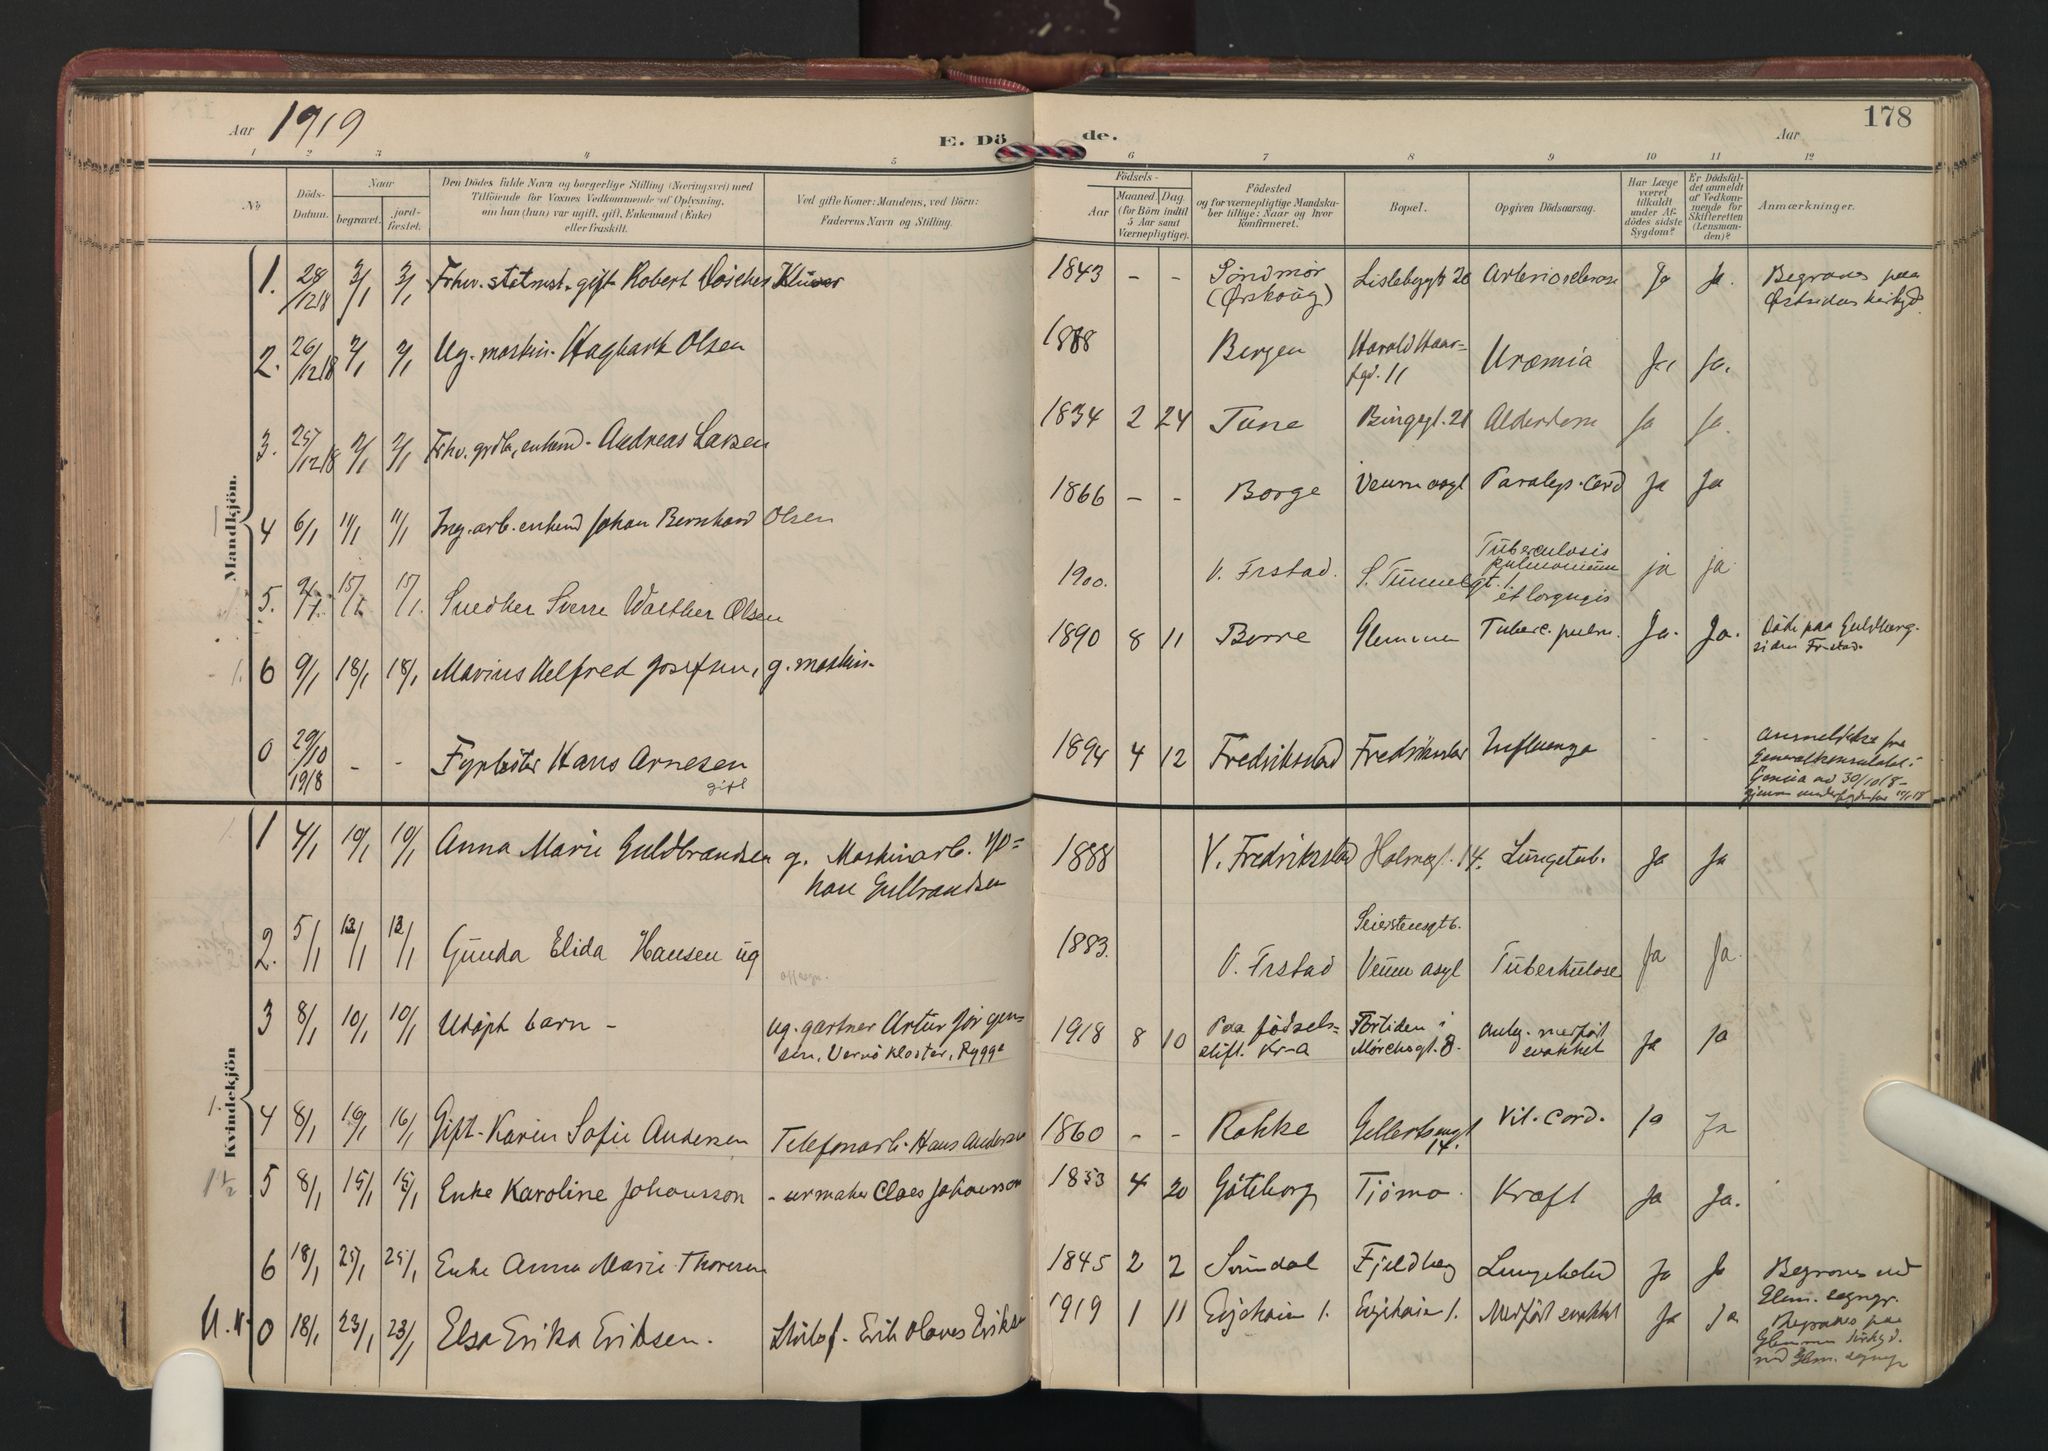 178
Aar 1919
E. Dö de.
Aar
1 2 3 4 5 6 7 8 9 10 11 12
No
Döds-Datum.
Naar
begravet.
jord-fæstet.
Den Dödes fulde Navn og borgerlige Stilling (Næringsvei) med
Tilföiende for Voxnes Vedkommende af Oplysning,
om han (hun) var ugift, gift, Enkemand (Enke)
eller fraskilt.
Ved gifte Koner: Mandens, ved Börn:
Faderens Navn og Stilling.
Födsels-
Aar
Maaned Dag
(for Börn indtil
5 Aar samt
Værnepligtige).
Födested
og for værnepligtige Mandska-
ber tillige: Naar og hvor
Konfirmeret.
Bopæl.
Opgiven Dödsaarsag.
Har Læge
været
tilkaldt
under Af-
dödes sidste
Sygdom?
Er Dödsfal-
det anmeldt
af Vedkom-
mende for
Skifteretten
(Lensman-
den)?
Anmærkninger.
Mandkjön.
1. 28/12 18 3/1 3/1 Frhv. gift Robert Klüver 1843 - - Söndmör (Ørskoug) 20 Arteriosclerose Ja Ja. Begraves paa Østsidens kirkgd.
2. 26/12 18 2/1 2/1 Ug. maskin. Hagbart Olsen 1888 Bergen Harald Haar-
fgd. 11 Uræmia Ja, Ja.
3. 25/12 18 2/1 2/1 Frhv. enkem. Andreas Larsen 1834 2 24 Tune Bingsgt. 21 Alderdom Ja Ja.
4 6/1 11/1 11/1 enkem Johan Bernhard Olsen 1866 - - Borge Veum asyl Paralys. cord Ja Ja
5. 9/1 15/1 15/1. Snedker Sverre Walther Olsen 1900. V. Frstad. S. Tunnelgt. 1. Tuberculosis
pulmonum
et laryngis ja ja
1. 6 9/1 18/1 18/1 Marius Alfred Josefsen, g. maskin. 1890 8 11 Borre Glemmen Tuberc. pulm. Ja. Ja. Döde paa Guldberg-
siden Fr-stad.
0 29/10 1918 - - Fyrböter Hans Arnesen
gift 1894 4 12 Fredrikstad Fredrikstad Influenza - - Anmeldelse fra
Generalkonsulatet i
Genua 30/10 18 -
Kvindekjön
1 4/1 10/1 10/1 Anna Marie Guldbrandsen g. Maskinarb. Jo=
han Gulbrandsen 1888 V. Fredrikstad Holmegt. 14. Lungetub. Ja Ja
2. 5/1 13/1 13/1 Gunda Elida Hansen ug 1883. V. Frstad Seierstensgt 6.
Veum asyl Tuberkulose Ja Ja.
3 8/1 10/1 10/1 Udöpt barn - ug. gartner Artur Jörgen-
sen, Vernö kloster, Rygge 1918 8 10 Paa födsels-
stift. Kr-a Fortiden i
Mörchsgt. 8. medföt
svakhet Ja Ja
1. 4 8/1 16/1 16/1 Gift. Karen Sofie Andersen Telefonarb. Hans Andersen 1860 - - Rokke Gellertsengt
14. Vit. cord. Ja Ja
1½ 5 8/1 15/1 15/1 Enke Karoline Johansson - urmaker Claes Johansson 1853 4 20 Göteborg Tjömö. Kræft Ja Ja.
6 18/1 25/1 25/1 Enke Anna Marie Thoresen 1845 2 2 Sundal Fjeldberg Ja Ja Begraves ved
Glm. sogngr.
U. v. 0 18/1 23/1 23/1 Elsa Erika Eriksen. Erik Olaves Eriksen 1919 1 11 Evjekaien 1. Evjekaien 1. Medföt svakhet Ja Ja Begraves paa
Glemmen kirkgd.
ved Glm. sogngr